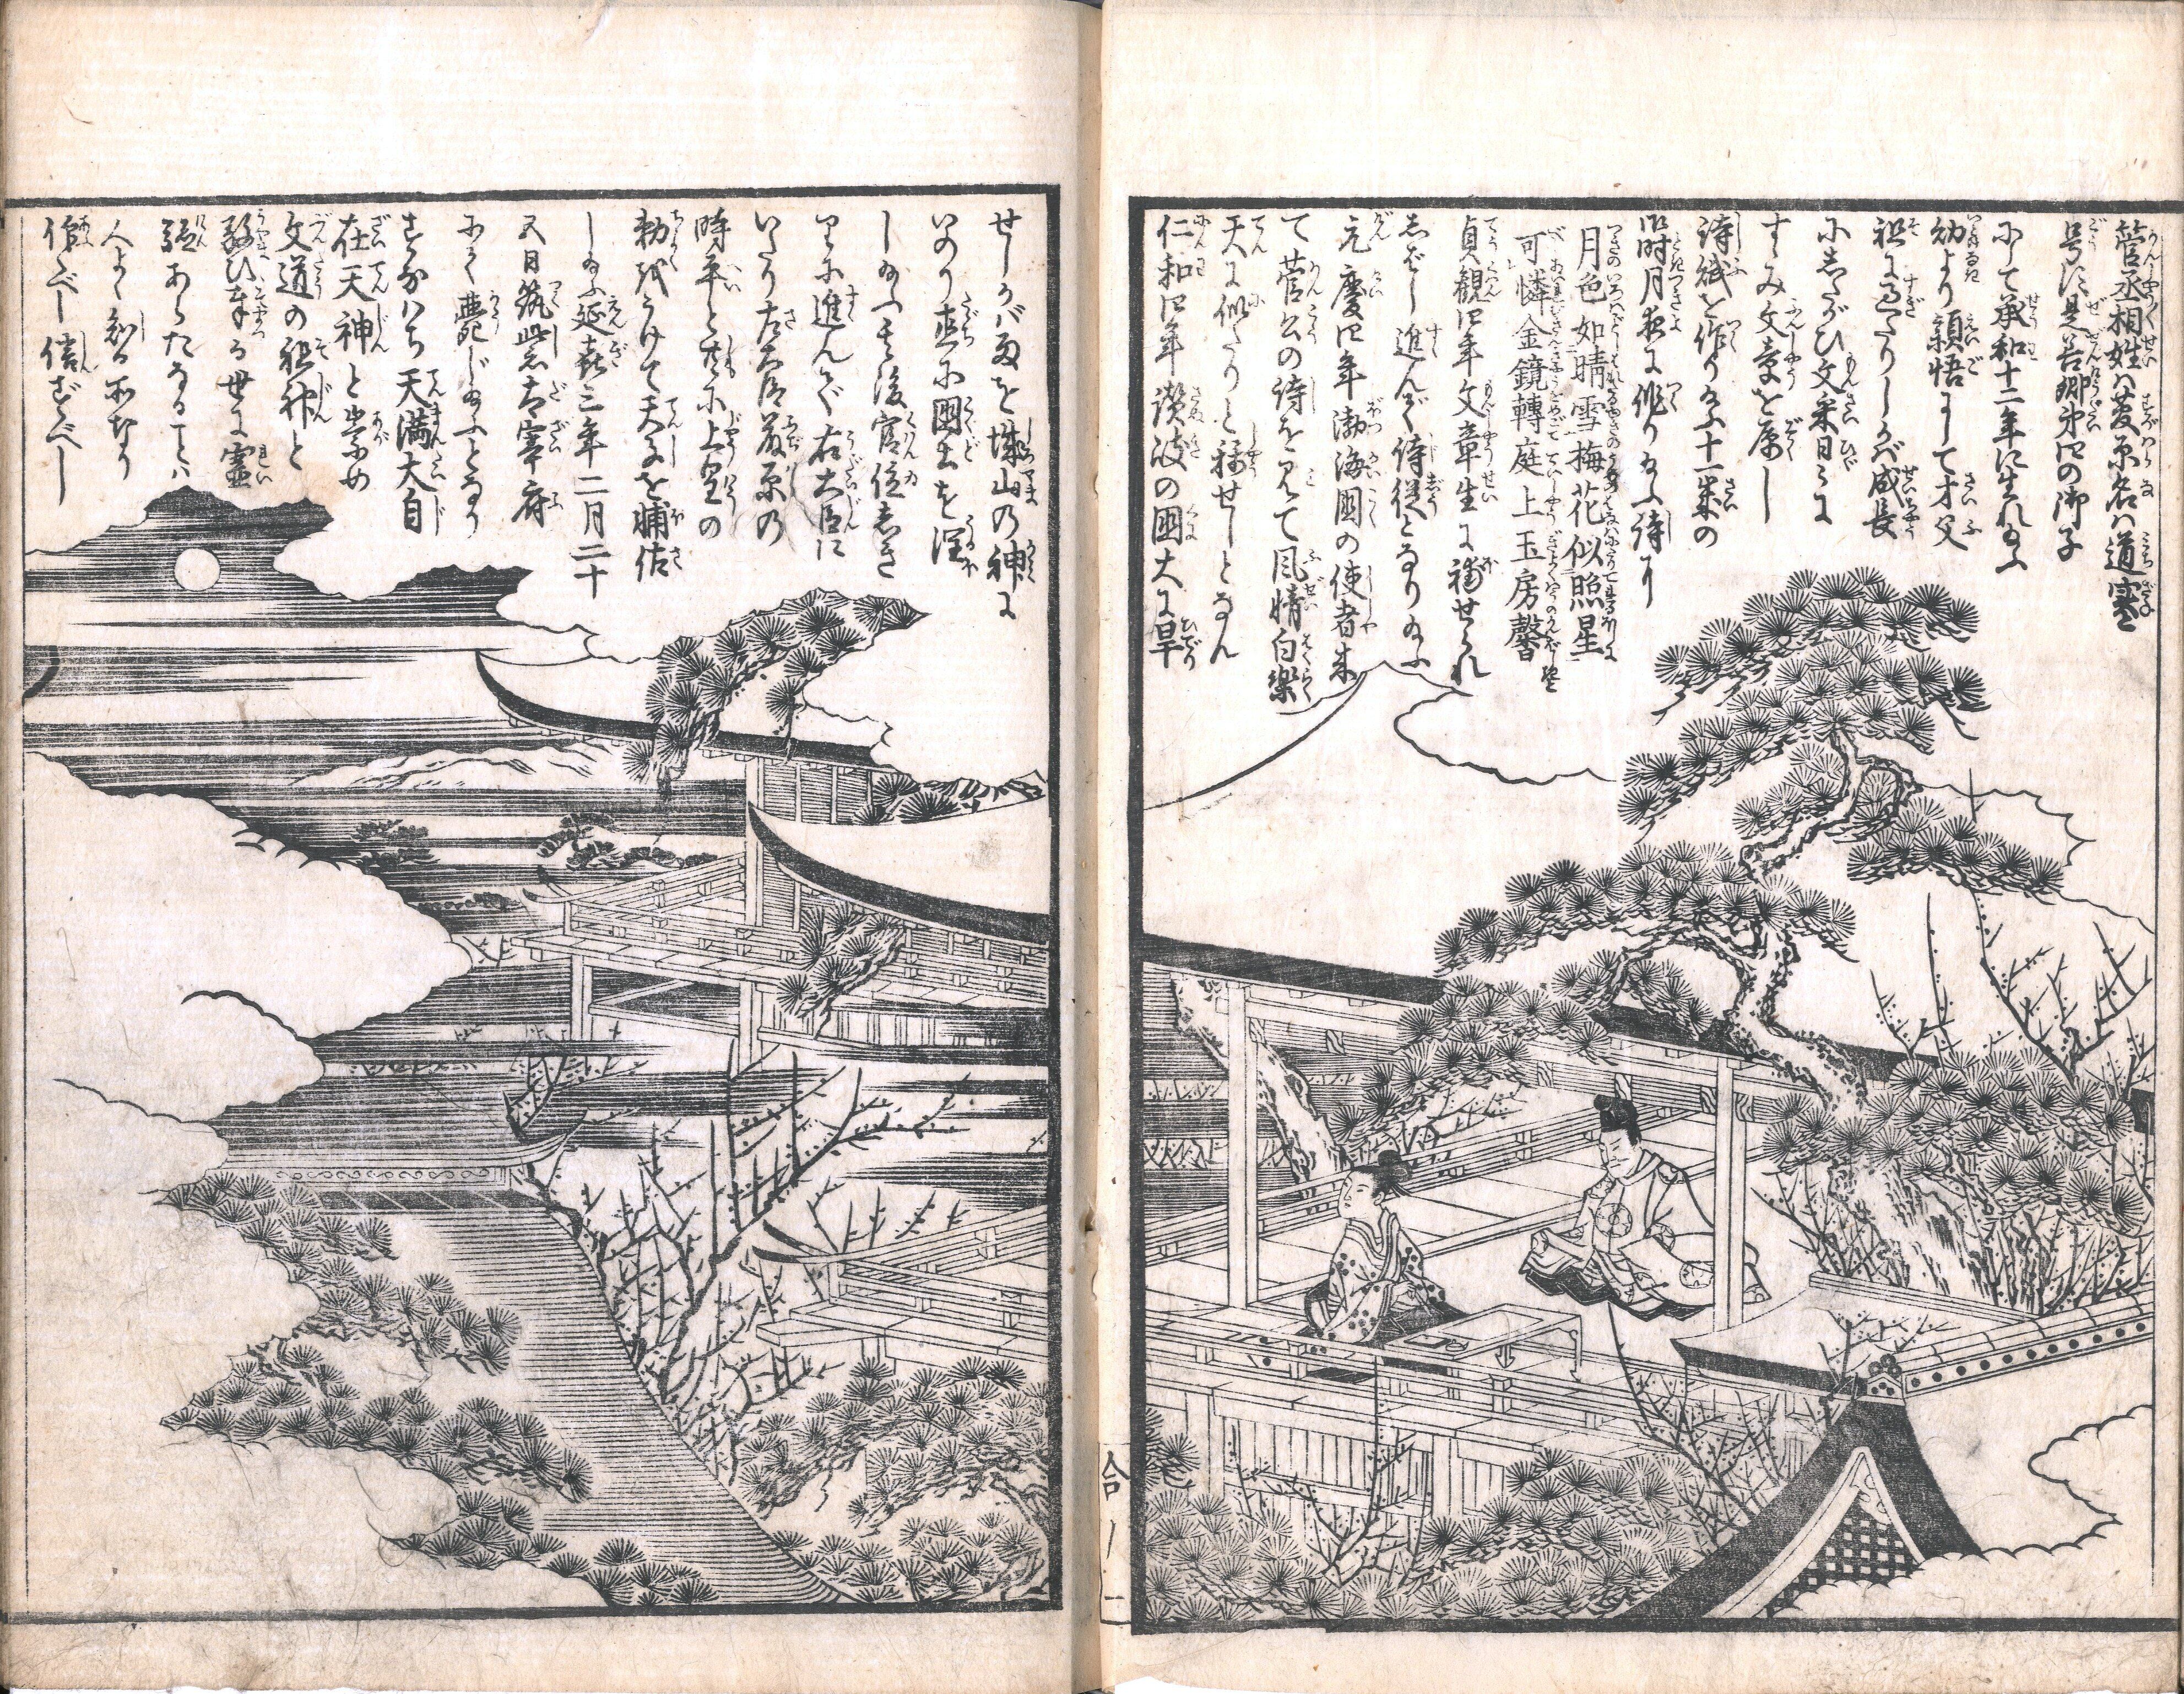 菅丞相姓は菅原名は道實
号に是善卿第四の御子
にて承和十二年に生れ給ふ
幼より頴悟にして才父
祖に過たりしかば成長
にしたがひ文米日々に
すゝみ文章を属し
詩賦を作り給ふ十一歳の
御時月夜に作り給ふ詩に
月色如晴雪梅花似照星
可憐金鏡轉庭上玉房馨
貞観四年文章生に補せられ
しば〳〵進んで侍従となり給ふ
元慶四年渤海國の使者来
て菅公の詩を見て風情白樂
天に似たりと称せしとなん
仁和四年讃岐の國大に旱
せしかば雨を城山の神に
いのり直に國土を潤
し給ふ其後官位しき
りに進んで右大臣に
いたり左大臣藤原の
時平とともに上皇の
勅をうけて天子を輔佐
し給ふ延喜三年二月二十
五日筑紫太宰府
にて薨じ給ふとなり
すなはち天満大自
在天神と崇め
文道の祖神と
敬ひ奉る世に霊
験あらたなることは
人よく知る所なり
仰べし信ずべし